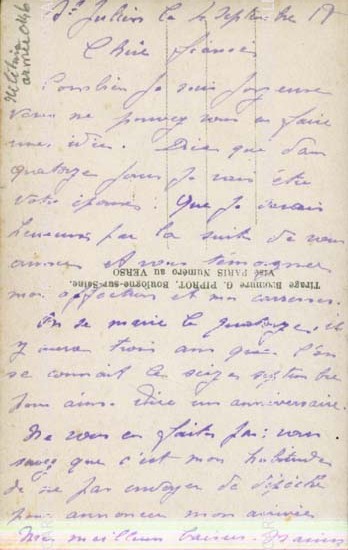 St Julien le 4 septembre 19
Cher fiancé
Combien je suis joyeuse
vous ne pouvez vous en faire
une idée. Dire que dans
quatorze jours je vais être
votre épouse. Que je serais
heureuse par la suite de vous
aimer et vous témoigner
mon affection et mes caresses.
On se marie le quatorze, il
y aura trois ans que l'on
se connait le seize septembre
pour ainsi dire un anniversaire.
Ne vous en faites pas; vous
savez que c'est mon habitude
de ne pas envoyer de dépêche
pour annoncer mon arrivée
Mes meilleurs baisers.
Tirage Bromure G. PIPROT, Boulogne-sur-Seine.
Visé PARIS Numéro au VERSO